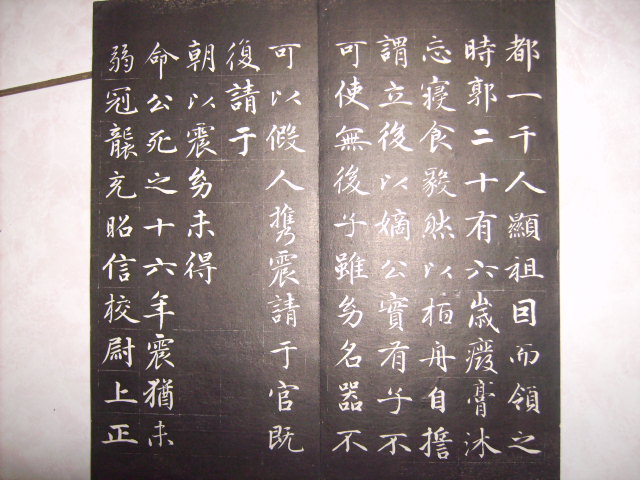 都一千人顯祖因而領之
時郭二十有六歲癈膏沐
忘寢食毅然以栢舟自誓
謂立後以嫡公實有子不
可使無後子雖幼名器不
可以假人携震請于官既
復請于
朝以震幼未得
命公死之十六年震猶未
弱冠襲充昭信校尉上正